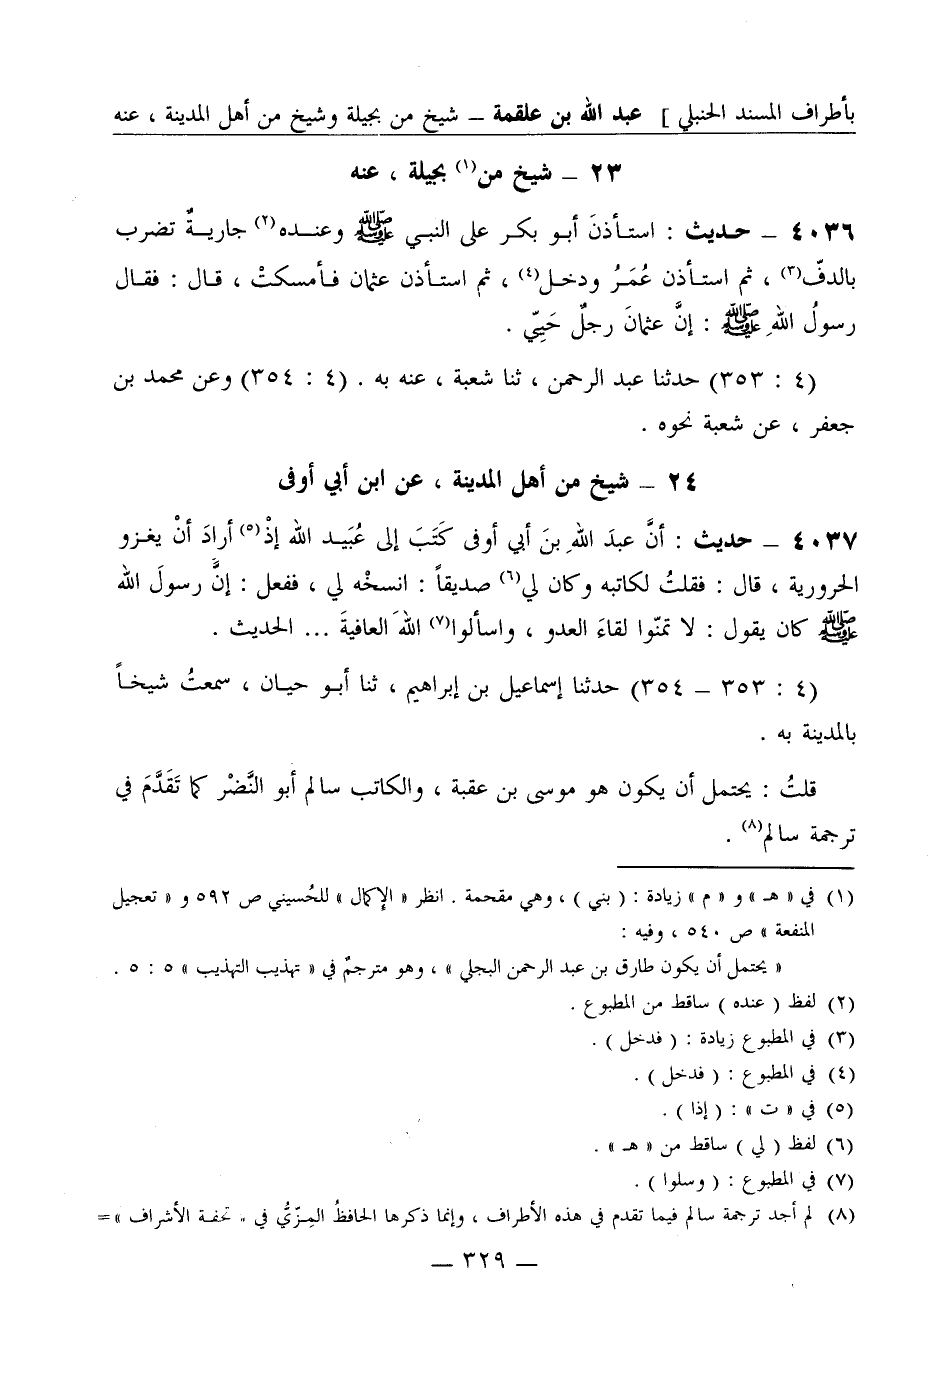 بأطراف المسند الحنبلي ] عبد الله بن علقمة ــ شيخ من بجيلة وشيخ من أهل المدينة ، عنه
٢٣ ــ شيخ من(١) بجيلة ، عنه
٤٠٣٦ ــ حديث : استأذنَ أبو بكر على النبي ﷺ وعنده(٢) جاريةٌ تضرب
بالدفّ(٣) ، ثم استأذن عُمَرُ ودخل(٤) ، ثم استأذن عثمان فأمسكتْ ، قال : فقال
رسولُ اللهِ ﷺ : إنَّ عثمانَ رجلٌ حَيِيّ .
(٤ : ٣٥٣) حدثنا عبد الرحمن ، ثنا شعبة ، عنه به . (٤ : ٣٥٤) وعن محمد بن
جعفر ، عن شعبة نحوه .
٢٤ ــ شيخ من أهل المدينة ، عن ابن أبي أوفى
٤٠٣٧ ــ حديث : أنَّ عبدَ اللهِ بنَ أبي أوفى كَتَبَ إلى عُبَيد الله إذْ(٥) أرادَ أنْ يغزو
الحرورية ، قال : فقلتُ لكاتبه وكان لي(٦) صديقاً : انسخْه لي ، ففعل : إنَّ رسولَ الله
ﷺ كان يقول : لا تمنّوا لقاءَ العدو ، واسألوا(٧) اللهَ العافيةَ ... الحديث .
(٤ : ٣٥٣ ــ ٣٥٤) حدثنا إسماعيل بن إبراهيم ، ثنا أبو حيان ، سمعتُ شيخاً
بالمدينة به .
قلتُ : يحتمل أن يكون هو موسى بن عقبة ، والكاتب سالم أبو النَّضْر كما تَقَدَّمَ في
ترجمة سالم(٨) .
(١) في « هـ » و « م » زيادة : ( بني ) ، وهي مقحمة . انظر « الإكمال » للحُسيني ص ٥٩٢ و « تعجيل
المنفعة » ص ٥٤٠ ، وفيه :
« يحتمل أن يكون طارق بن عبد الرحمن البجلي » ، وهو مترجمٌ في « تهذيب التهذيب » ٥ : ٥ .
(٢) لفظ ( عنده ) ساقط من المطبوع .
(٣) في المطبوع زيادة : ( فدخل ) .
(٤) في المطبوع : ( فدخل ) .
(٥) في « ت » : ( إذا ) .
(٦) لفظ ( لي ) ساقط من « هـ » .
(٧) في المطبوع : ( وسلوا ) .
(٨) لم أجد ترجمة سالم فيما تقدم في هذه الأطراف ، وإنما ذكرها الحافظُ المِزّيُّ في « تحفة الأشراف »=
ــ ٣٢٩ ــ